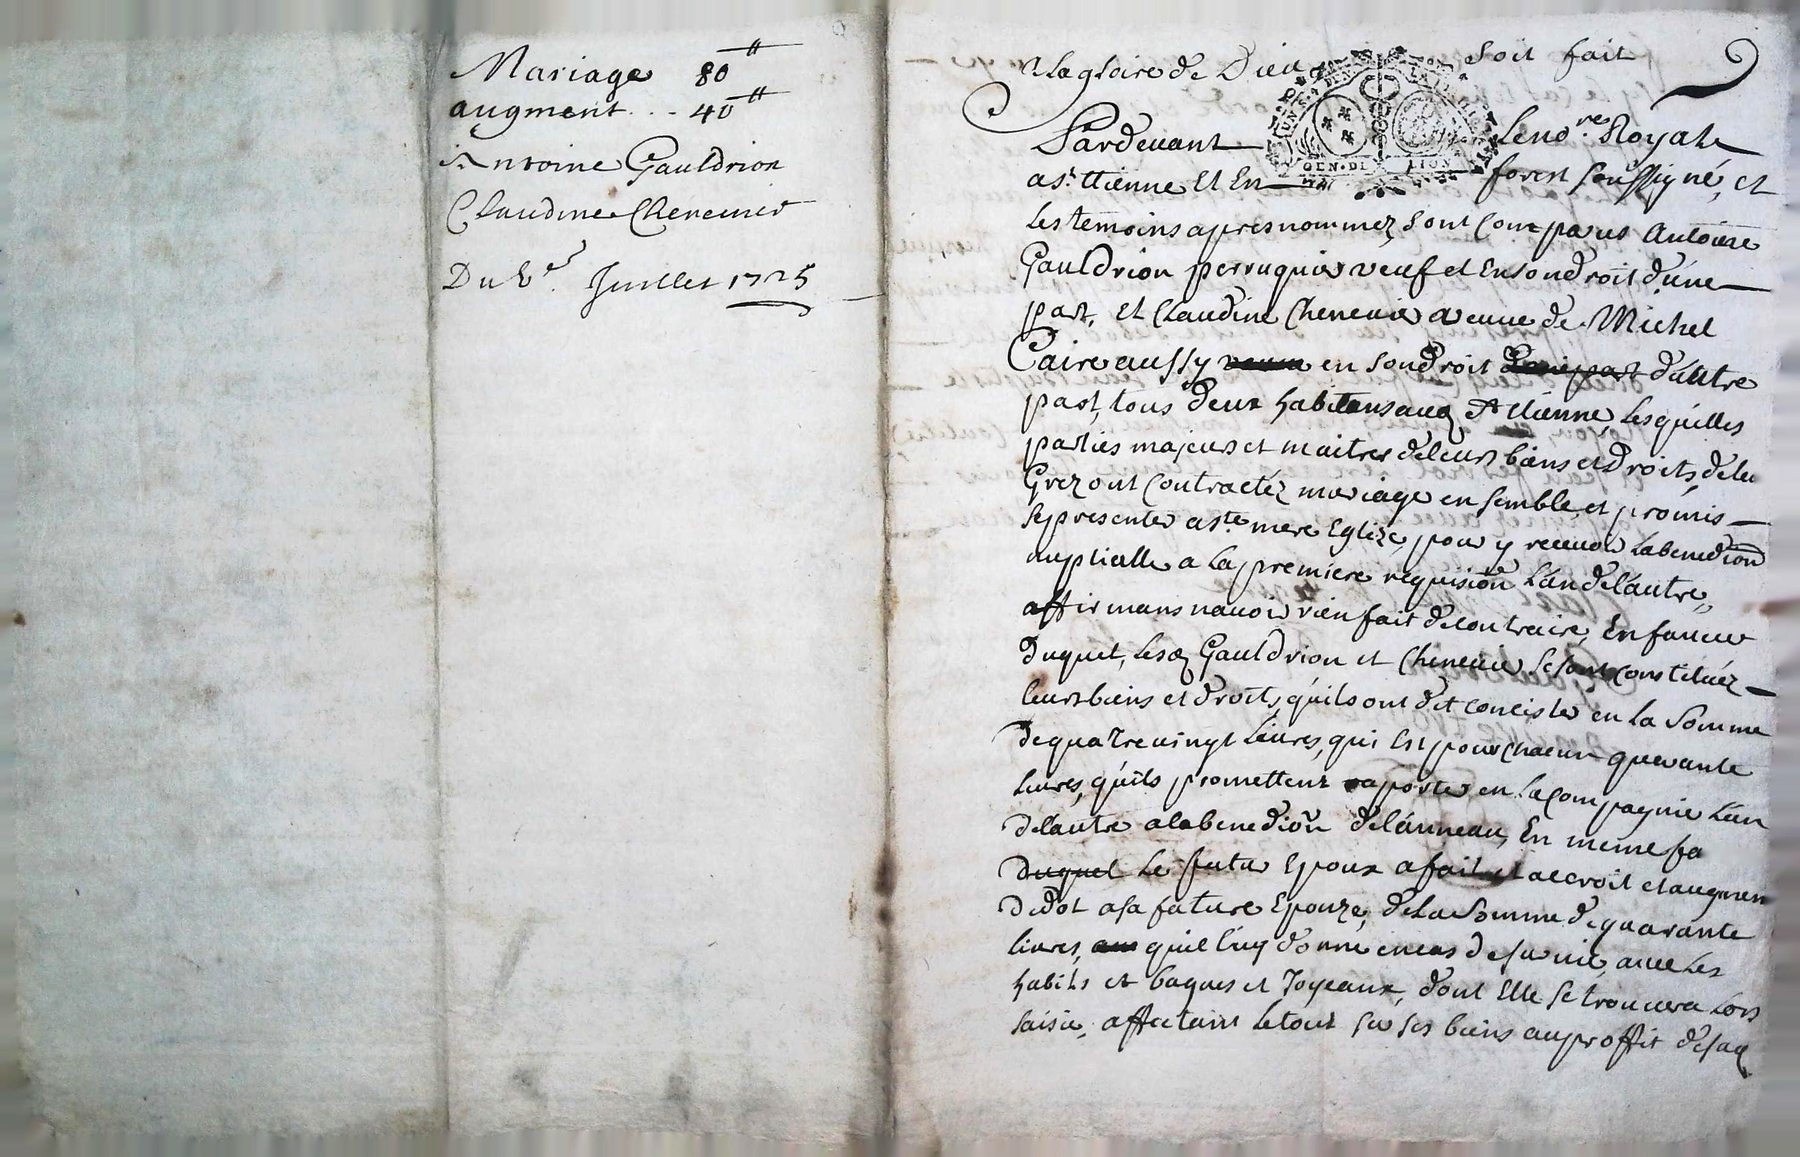 Mariage 80ᵗᵗ
augment . . . 40ᵗᵗ
Antoine Gauldrion
Claudine Chenevier
Du 8ᵉ. Juillet 1725
A La gloire de Dieu soit fait
Pardevant Le no.ʳᵉ Royal
a Sᵗ. Ettienne Et En forest soussigné, et
Les temoins apres nommez, sont comparus Antoine
Gauldrion perruquier veuf et En son droit d'une
part, et Claudine Chenevier veuve de Michel
Caire aussy en son droit d'autre
part, tous deux habitans audᵗ Sᵗ Ettienne, Lesquelles
parties majeurs et maitres de leurs biens et droits, de leur
Grez ont contractéz mariage ensemble, et promis
se presenter a Sᵗᵉ mere Eglize, pour y recevoir La benediōn
nuptialle a La premiere requisiōn L'un de l'autre,
affirmans n'avoir rien fait de contraire, En faveur
duquel, Lesdᵗ Gauldrion et Chenevier se sont constituéz
leurs biens et droits, qu'ils ont dit concister en La somme
de quatrevingt Livres, qui Est pour chacun quarante
Livres, qu'ils promettent aporter en La compagnie L'un
de l'autre a la benediōn de l'anneau, En meme fa
duquel Le futur Epoux a fait et accroit et augmen
de dot a sa future Epouze, de La somme de quarante
livres, qu'il luy donne en cas de survie, avec Les
habits et bagues et Joyeaux, dont Elle se trouvera Lors
saisie, affectant Le tout sur ses biens au proffit de sad.
GEN. DE LION